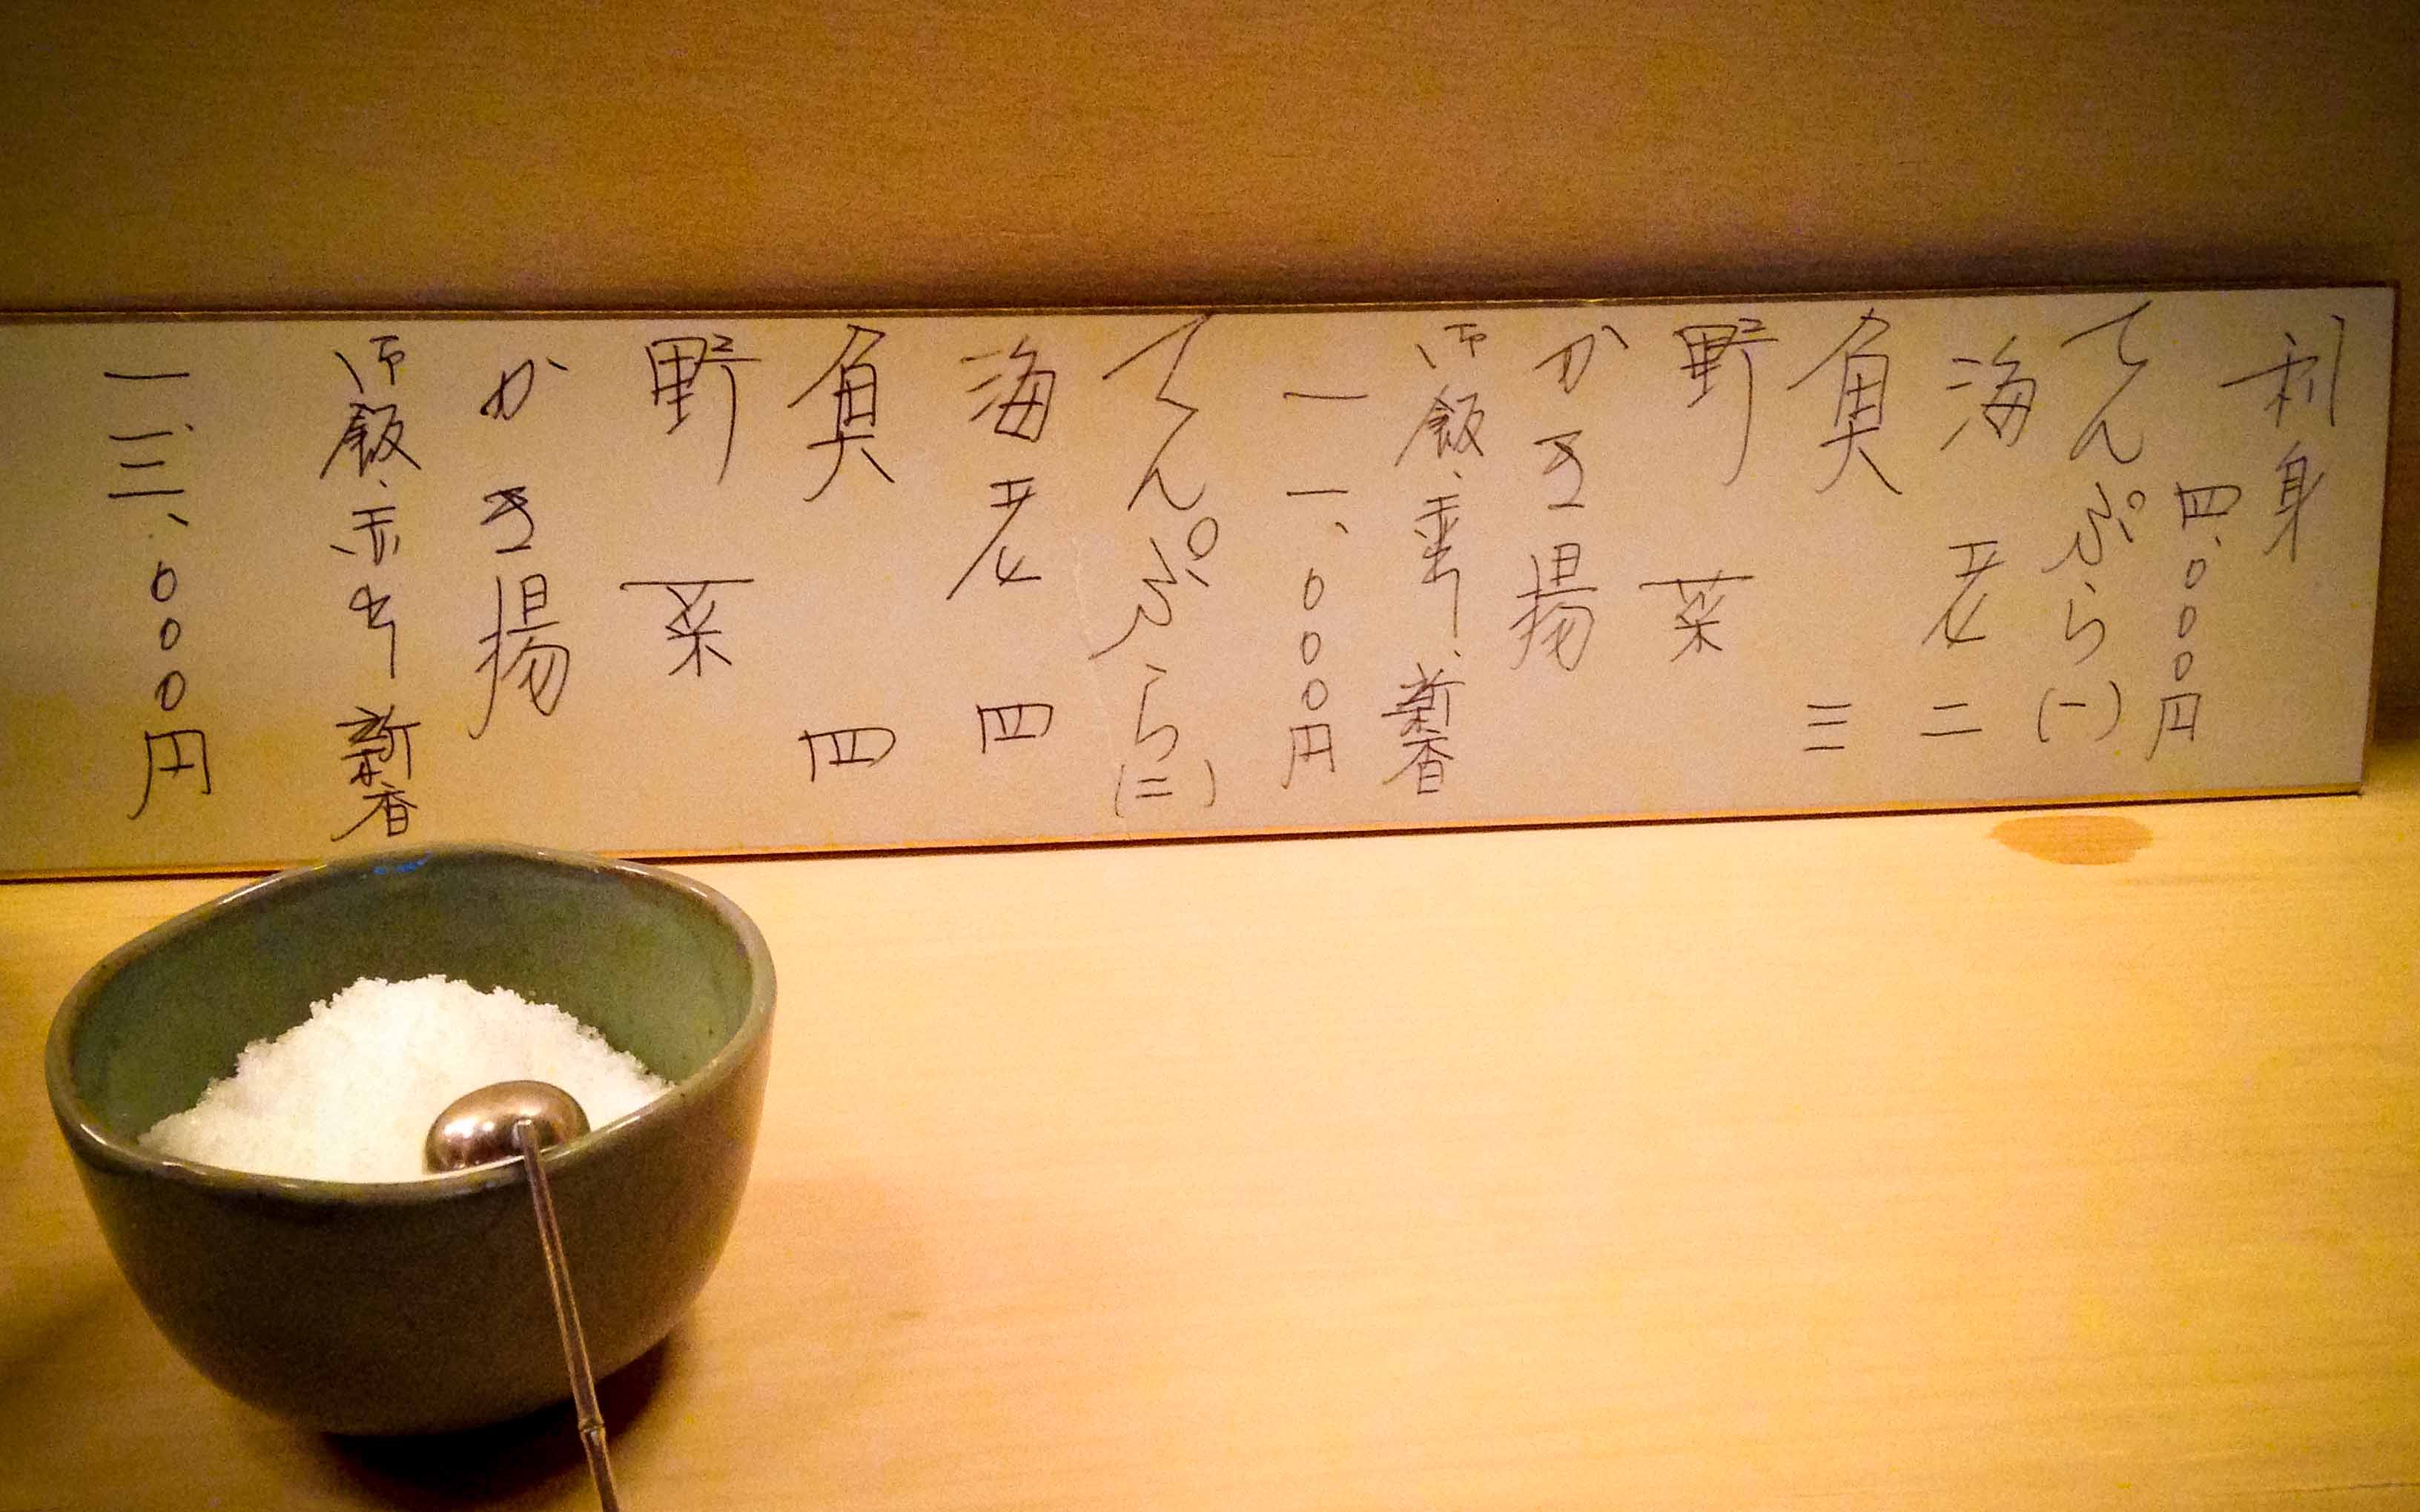 刺身
四、〇〇〇円
てんぷら(一)
海老 二
魚 三
野菜
かき揚
御飯、赤出、新香
一一、〇〇〇円
てんぷら(二)
海老 四
魚 四
野菜
かき揚
御飯、赤出 新香
一三、〇〇〇円